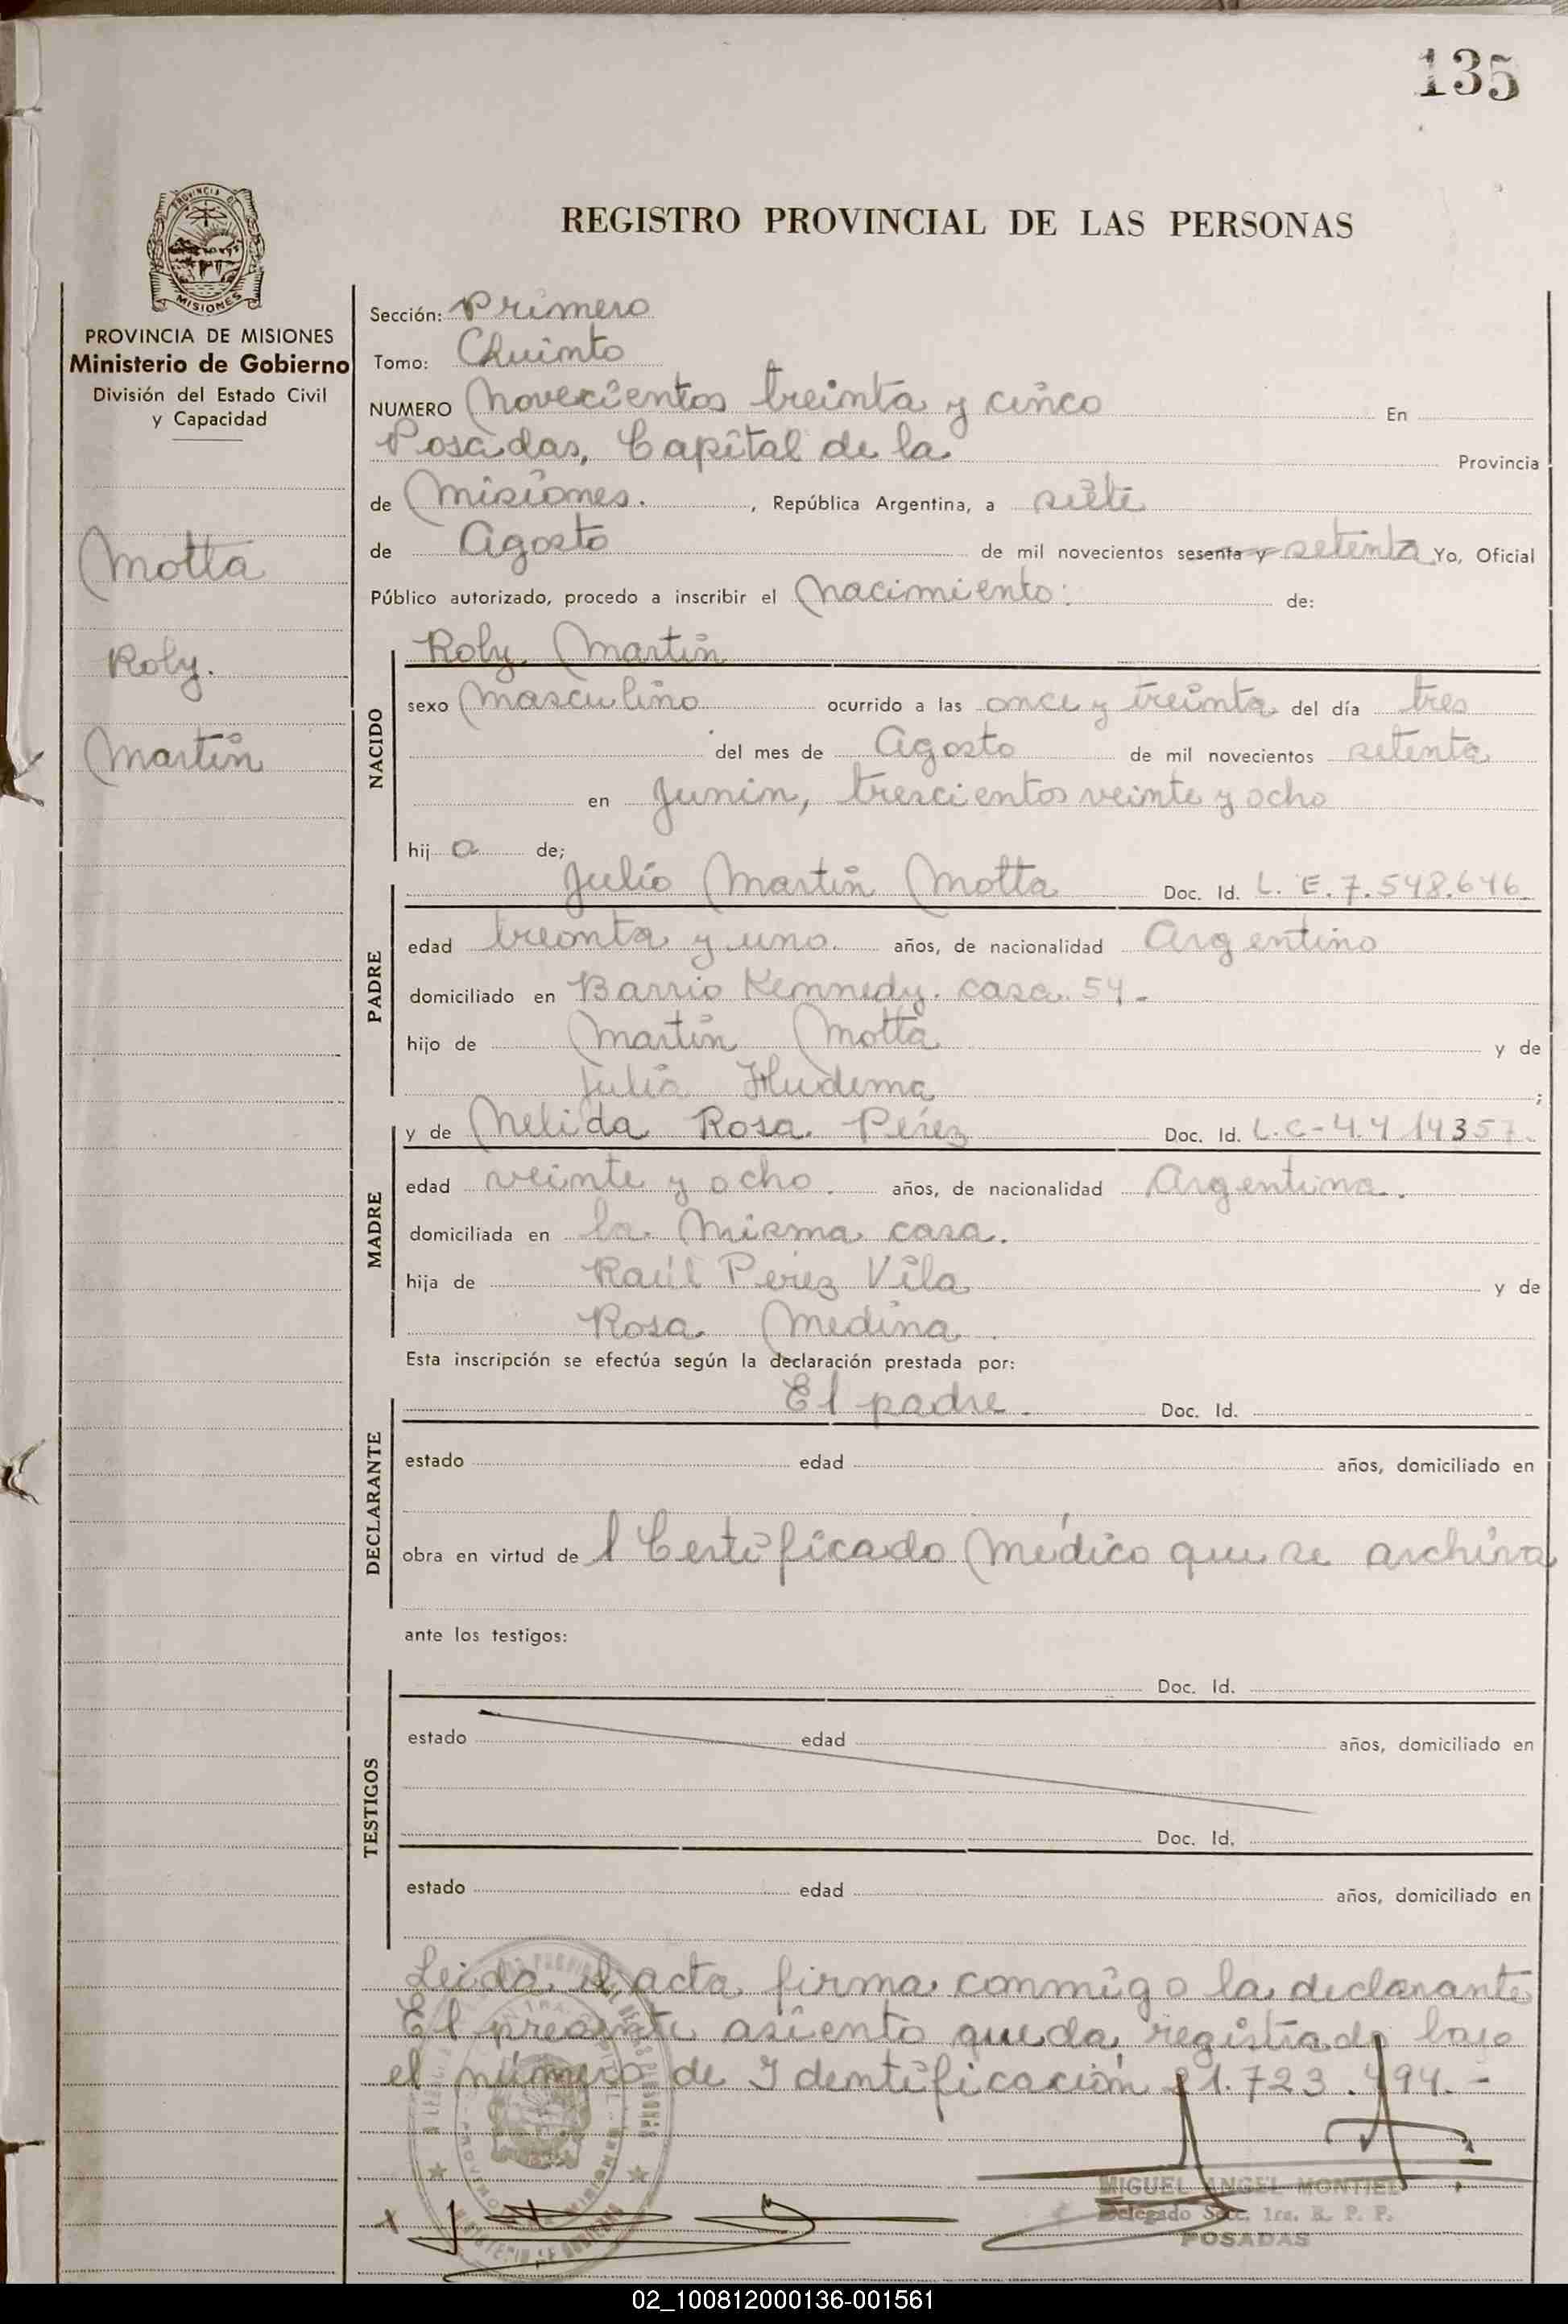 135
REGISTRO PROVINCIAL DE LAS PERSONAS
PROVINCIA DE MISIONES
MISIONES
PROVINCIA DE MISIONES
Ministerio de Gobierno
División del Estado Civil
y Capacidad
Motta
Roly.
Martin
Sección: Primero
Tomo: Quinto
NUMERO Novecientos treinta y cinco En
Posadas, Capital de la Provincia
de Misiones. , República Argentina, a siete
de Agosto de mil novecientos sesenta y setenta Yo, Oficial
Público autorizado, procedo a inscribir el Nacimiento: de:
NACIDO
Roly Martin
sexo Masculino ocurrido a las once y treinta del día tres
del mes de Agosto de mil novecientos setenta
en Junin, trescientos veinte y ocho
hij o de;
PADRE
Julio Martin Motta Doc. Id. L. E. 7.548.646.
edad treinta y uno años, de nacionalidad Argentino
domiciliado en Barrio Kennedy. casa. 54.-
hijo de Martin Motta y de
Julia Hudema ;
MADRE
y de Nelida Rosa Pérez Doc. Id. L.C-4.414357.
edad veinte y ocho. años, de nacionalidad Argentina.
domiciliada en la Misma casa.
hija de Raúl Perez Vila y de
Rosa Medina.
Esta inscripción se efectúa según la declaración prestada por:
DECLARANTE
El padre. Doc. Id.
estado edad años, domiciliado en
obra en virtud de l Certificado Médico que se archiva
ante los testigos:
TESTIGOS
Doc. Id.
estado edad años, domiciliado en
Doc. Id.
estado edad años, domiciliado en
Leida el acta firma conmigo la declarante
El presente asiento queda registrado bajo
el número de Identificación 21.723.494.-
MIGUEL ANGEL MONTIEL
Delegado Secc. 1ra. R. P. P.
POSADAS
02_100812000136-001561